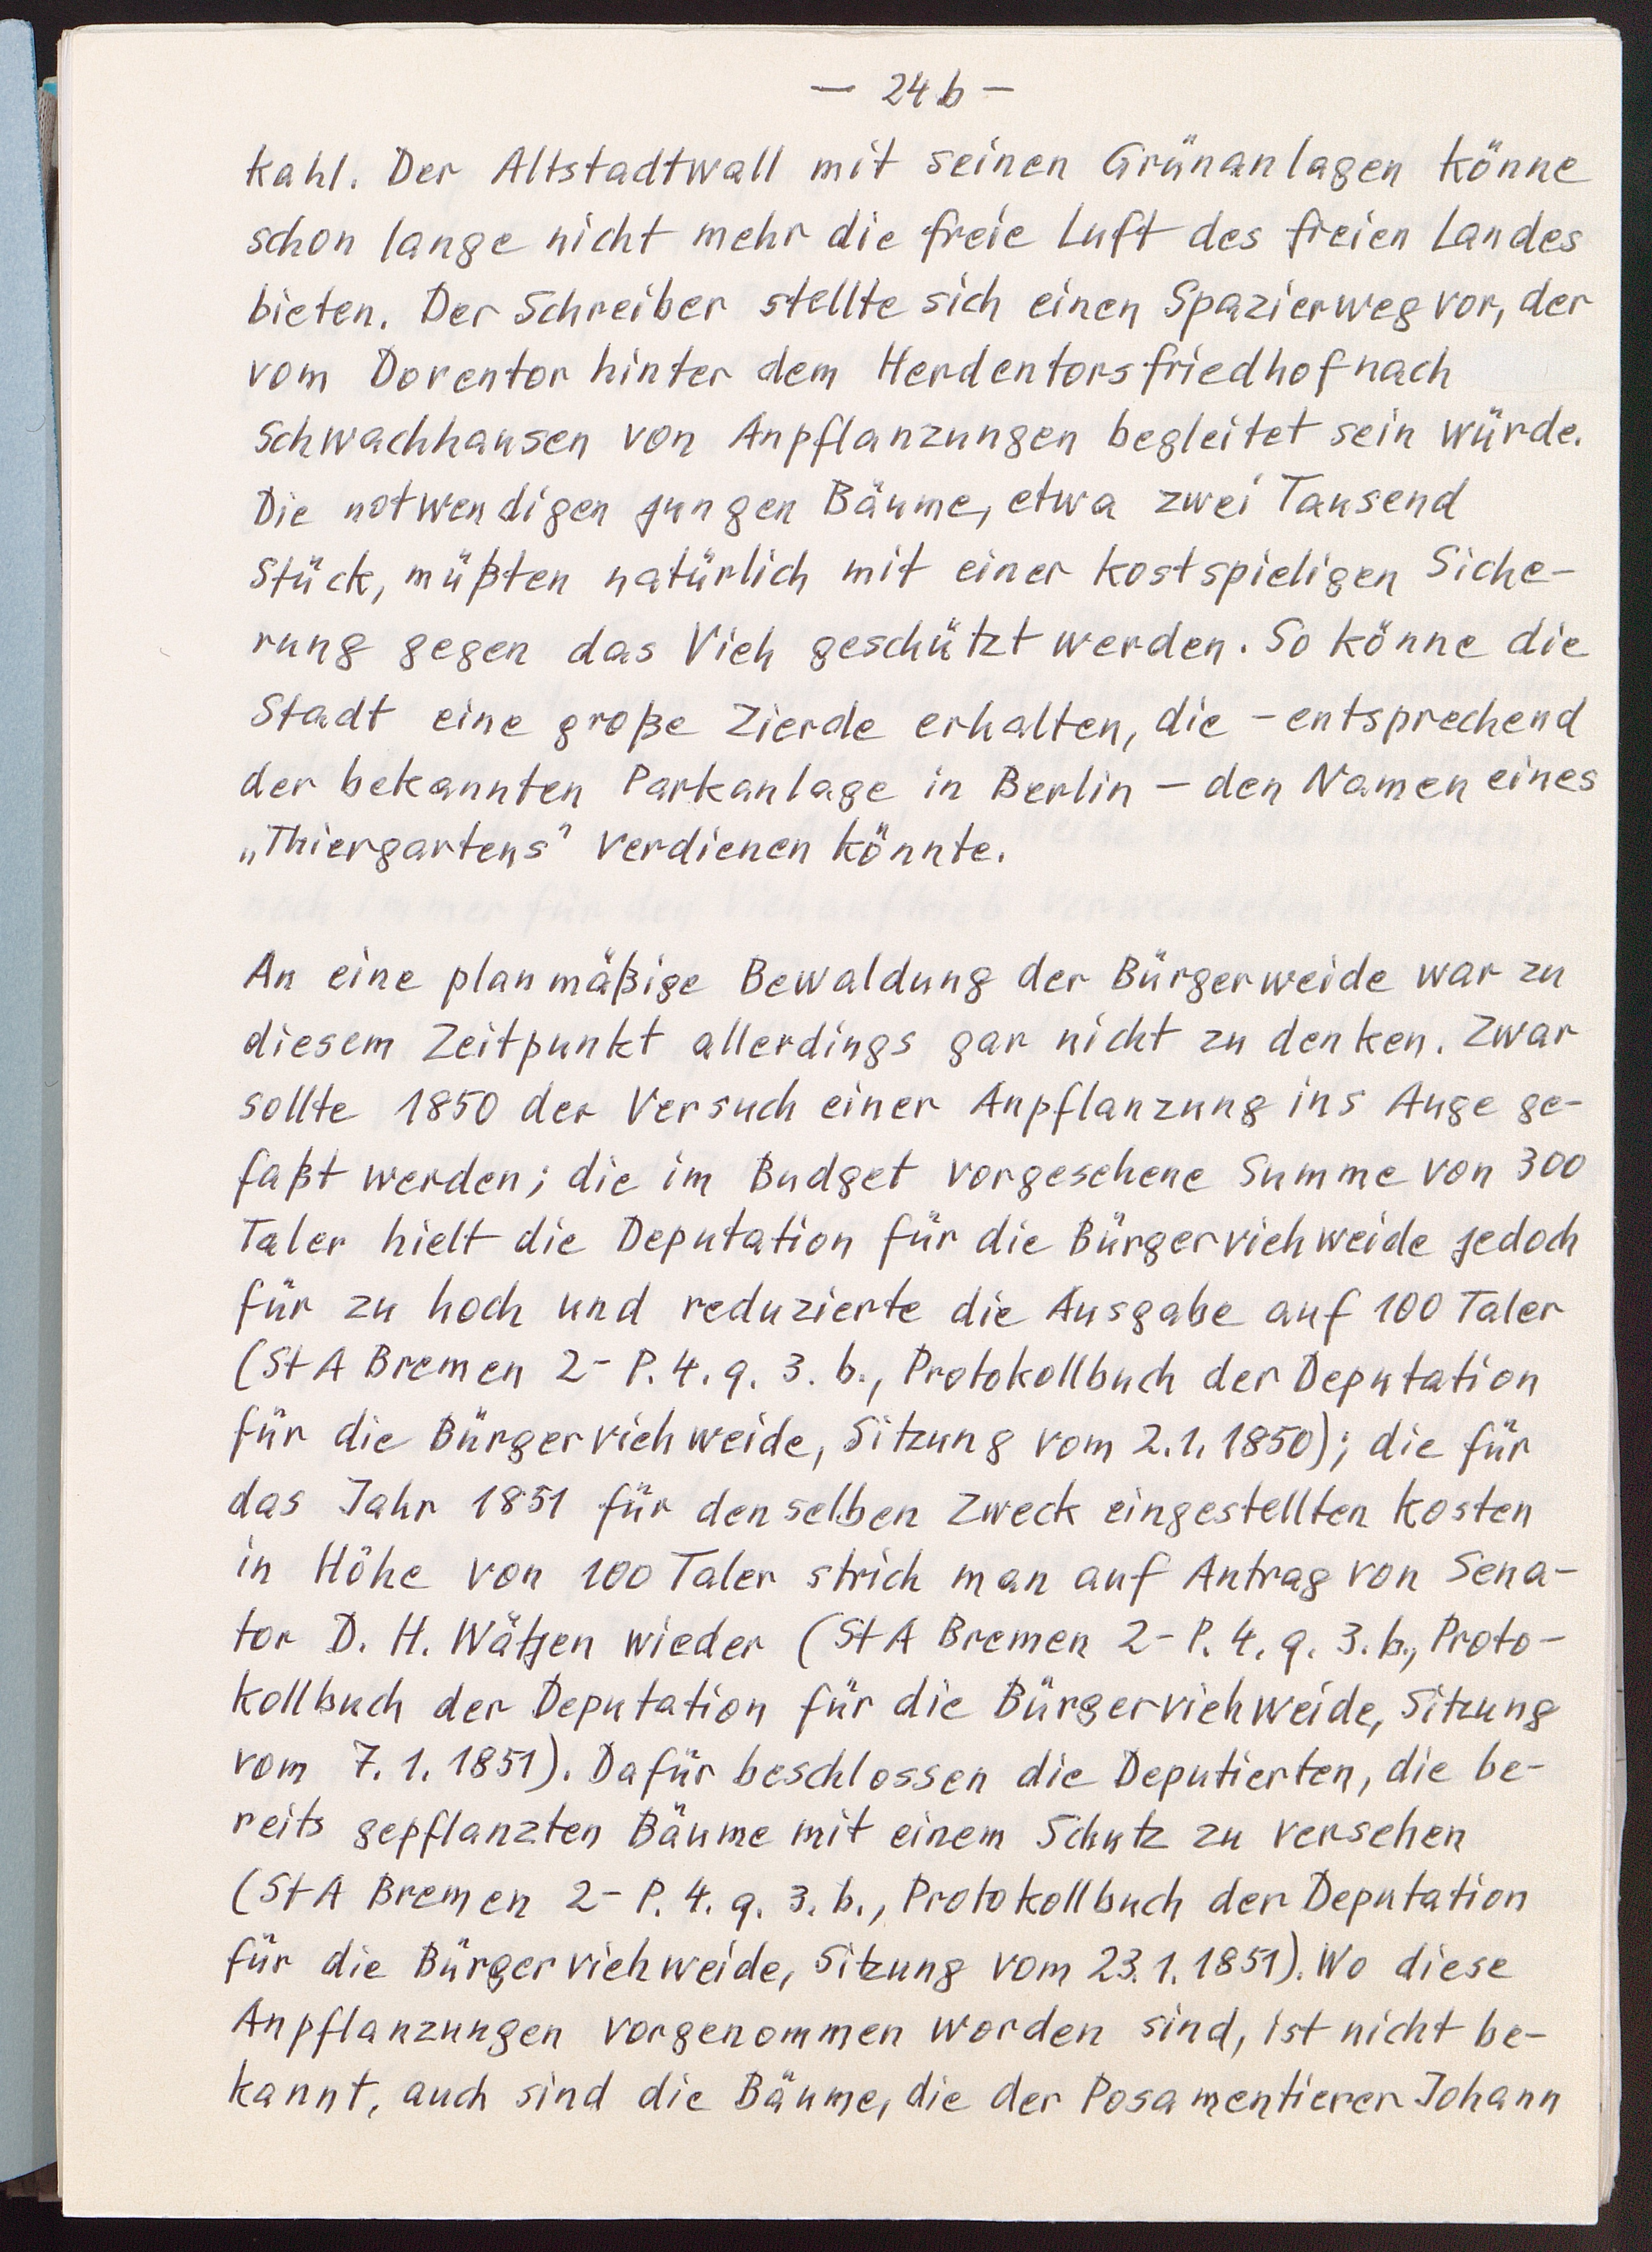 — 24b —
kahl. Der Altstadtwall mit seinen Grünanlagen könne
schon lange nicht mehr die freie Luft des freien Landes
bieten. Der Schreiber stellte sich einen Spazierweg vor, der
vom Doventor hinter dem Herdentorsfriedhof nach
Schwachhausen von Anpflanzungen begleitet sein würde.
Die notwendigen jungen Bäume, etwa zwei Tausend
Stück, müßten natürlich mit einer kostspieligen Siche-
rung gegen das Vieh geschützt werden. So könne die
Stadt eine große Zierde erhalten, die – entsprechend
der bekannten Parkanlage in Berlin – den Namen eines
„Thiergartens" verdienen könnte.
An eine planmäßige Bewaldung der Bürgerweide war zu
diesem Zeitpunkt allerdings gar nicht zu denken. Zwar
sollte 1850 der Versuch einer Anpflanzung ins Auge ge-
faßt werden; die im Budget vorgesehene Summe von 300
Taler hielt die Deputation für die Bürgerviehweide jedoch
für zu hoch und reduzierte die Ausgabe auf 100 Taler
(StA Bremen 2-P.4.q.3.b., Protokollbuch der Deputation
für die Bürgerviehweide, Sitzung vom 2.1.1850); die für
das Jahr 1851 für denselben Zweck eingestellten Kosten
in Höhe von 100 Taler strich man auf Antrag von Sena-
tor D. H. Wätjen wieder (StA Bremen 2-P.4.q.3.b., Proto-
kollbuch der Deputation für die Bürgerviehweide, Sitzung
vom 7.1.1851). Dafür beschlossen die Deputierten, die be-
reits gepflanzten Bäume mit einem Schutz zu versehen
(StA Bremen 2-P.4.q.3.b., Protokollbuch der Deputation
für die Bürgerviehweide, Sitzung vom 23.1.1851). Wo diese
Anpflanzungen vorgenommen worden sind, ist nicht be-
kannt, auch sind die Bäume, die der Posamentierer Johann